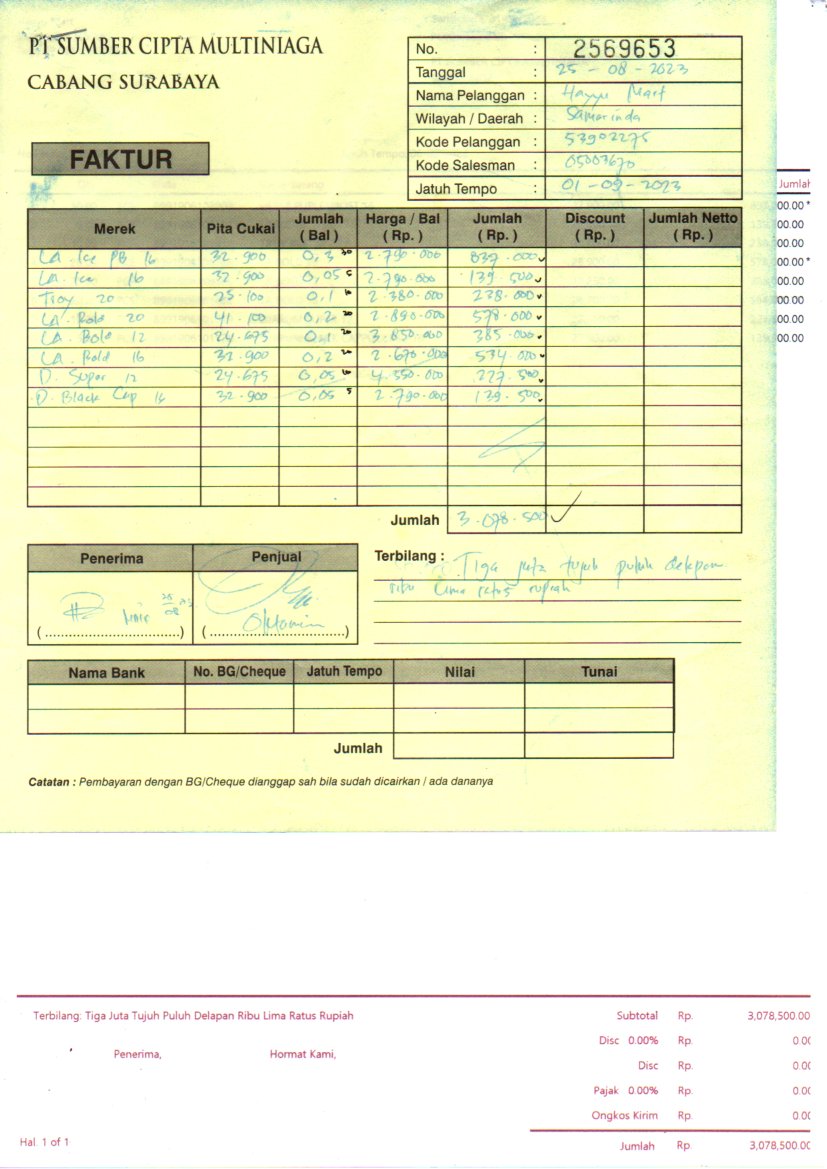 PT SUMBER CIPTA MULTINIAGA
CABANG SURABAYA
FAKTUR
No. : 2569653
Tanggal : 25 - 08 - 2023
Nama Pelanggan : Hayyu Mart
Wilayah / Daerah : Samarinda
Kode Pelanggan : 53902275
Kode Salesman : 05003670
Jatuh Tempo : 01 - 09 - 2023
Jumlah
00.00 *
00.00
00.00
00.00 *
00.00
00.00
00.00
00.00
Merek Pita Cukai Jumlah ( Bal ) Harga / Bal ( Rp. ) Jumlah ( Rp. ) Discount ( Rp. ) Jumlah Netto ( Rp. )
LA. Ice PB 16 32.900 0,3 30 2.790.000 837.000
LA. Ice 16 32.900 0,05 5 2.790.000 139.500
Troy 20 25.100 0,1 10 2.380.000 238.000
LA. Bold 20 41.100 0,2 20 2.890.000 578.000
LA. Bold 12 24.675 0,1 20 3.850.000 385.000
LA. Bold 16 32.900 0,2 20 2.670.000 534.000
D. Super 12 24.675 0,05 10 4.550.000 227.500
D. Black Cap 16 32.900 0,05 5 2.790.000 139.500
Jumlah 3.078.500
Penerima Penjual
Terbilang : Tiga juta tujuh puluh delapan
ribu lima ratus rupiah
25
08
Oktavin
(..............................) (..............................)
Nama Bank No. BG/Cheque Jatuh Tempo Nilai Tunai
Jumlah
Catatan : Pembayaran dengan BG/Cheque dianggap sah bila sudah dicairkan / ada dananya
Terbilang: Tiga Juta Tujuh Puluh Delapan Ribu Lima Ratus Rupiah Subtotal Rp. 3,078,500.00
Disc 0.00% Rp. 0.00
Penerima, Hormat Kami,
Disc Rp. 0.00
Pajak 0.00% Rp. 0.00
Ongkos Kirim Rp. 0.00
Hal. 1 of 1 Jumlah Rp. 3,078,500.00